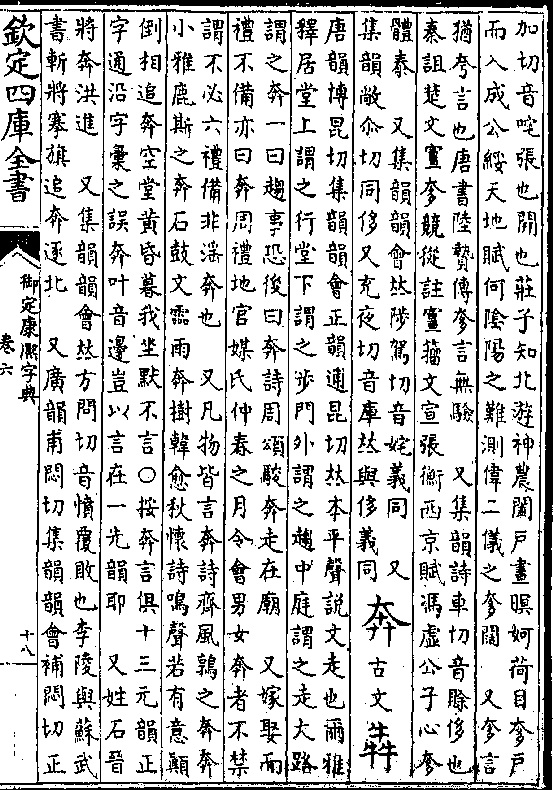 加切音咤張也開也莊子知北遊神農闔戸晝瞑婀荷甘奓戸
而入成公綏天地賦何陰陽之難測偉二儀之奓闊　又奓言
猶夸言也唐書陸贄傳奓言無驗　又集韻詩車切音賖侈也
秦詛楚文宣奓競從註宣籀文宣張衡西京賦馮虛公子心奓
體泰　又集韻韻會𠀤陟駕切音奼義同　又
集韻敞尒切同侈又充夜切音庫𠀤與侈義同
奔　古文犇
唐韻博昆切集韻韻會正韻逋昆切𠀤本平聲說文走也爾雅
釋居堂上謂之行堂下謂之步門外謂之趨中庭謂之走大路
謂之奔一曰趨事恐後曰奔詩周頌駿奔走在廟　又嫁娶而
禮不備亦曰奔周禮地官媒氏仲春之月令會男女奔者不禁
謂不必六禮備非淫奔也　又凡物皆言奔詩齊風鶉之奔奔
小雅鹿斯之奔石鼓文霝雨奔樹韓愈秋懷詩鳴聲若有意顚
倒相追奔空堂黃昏暮我坐默不言○按奔言俱十三元韻正
字通沿字彙之誤奔叶音邊豈以言在一先韻耶　又姓石晉
將奔洪進　又集韻韻會𠀤方問切音憤覆敗也李陵與蘇武
書斬將搴旗追奔逐北　又廣韻甫悶切集韻韻會補悶切正
欽定四庫全書
御定康熙字典
卷六
十八